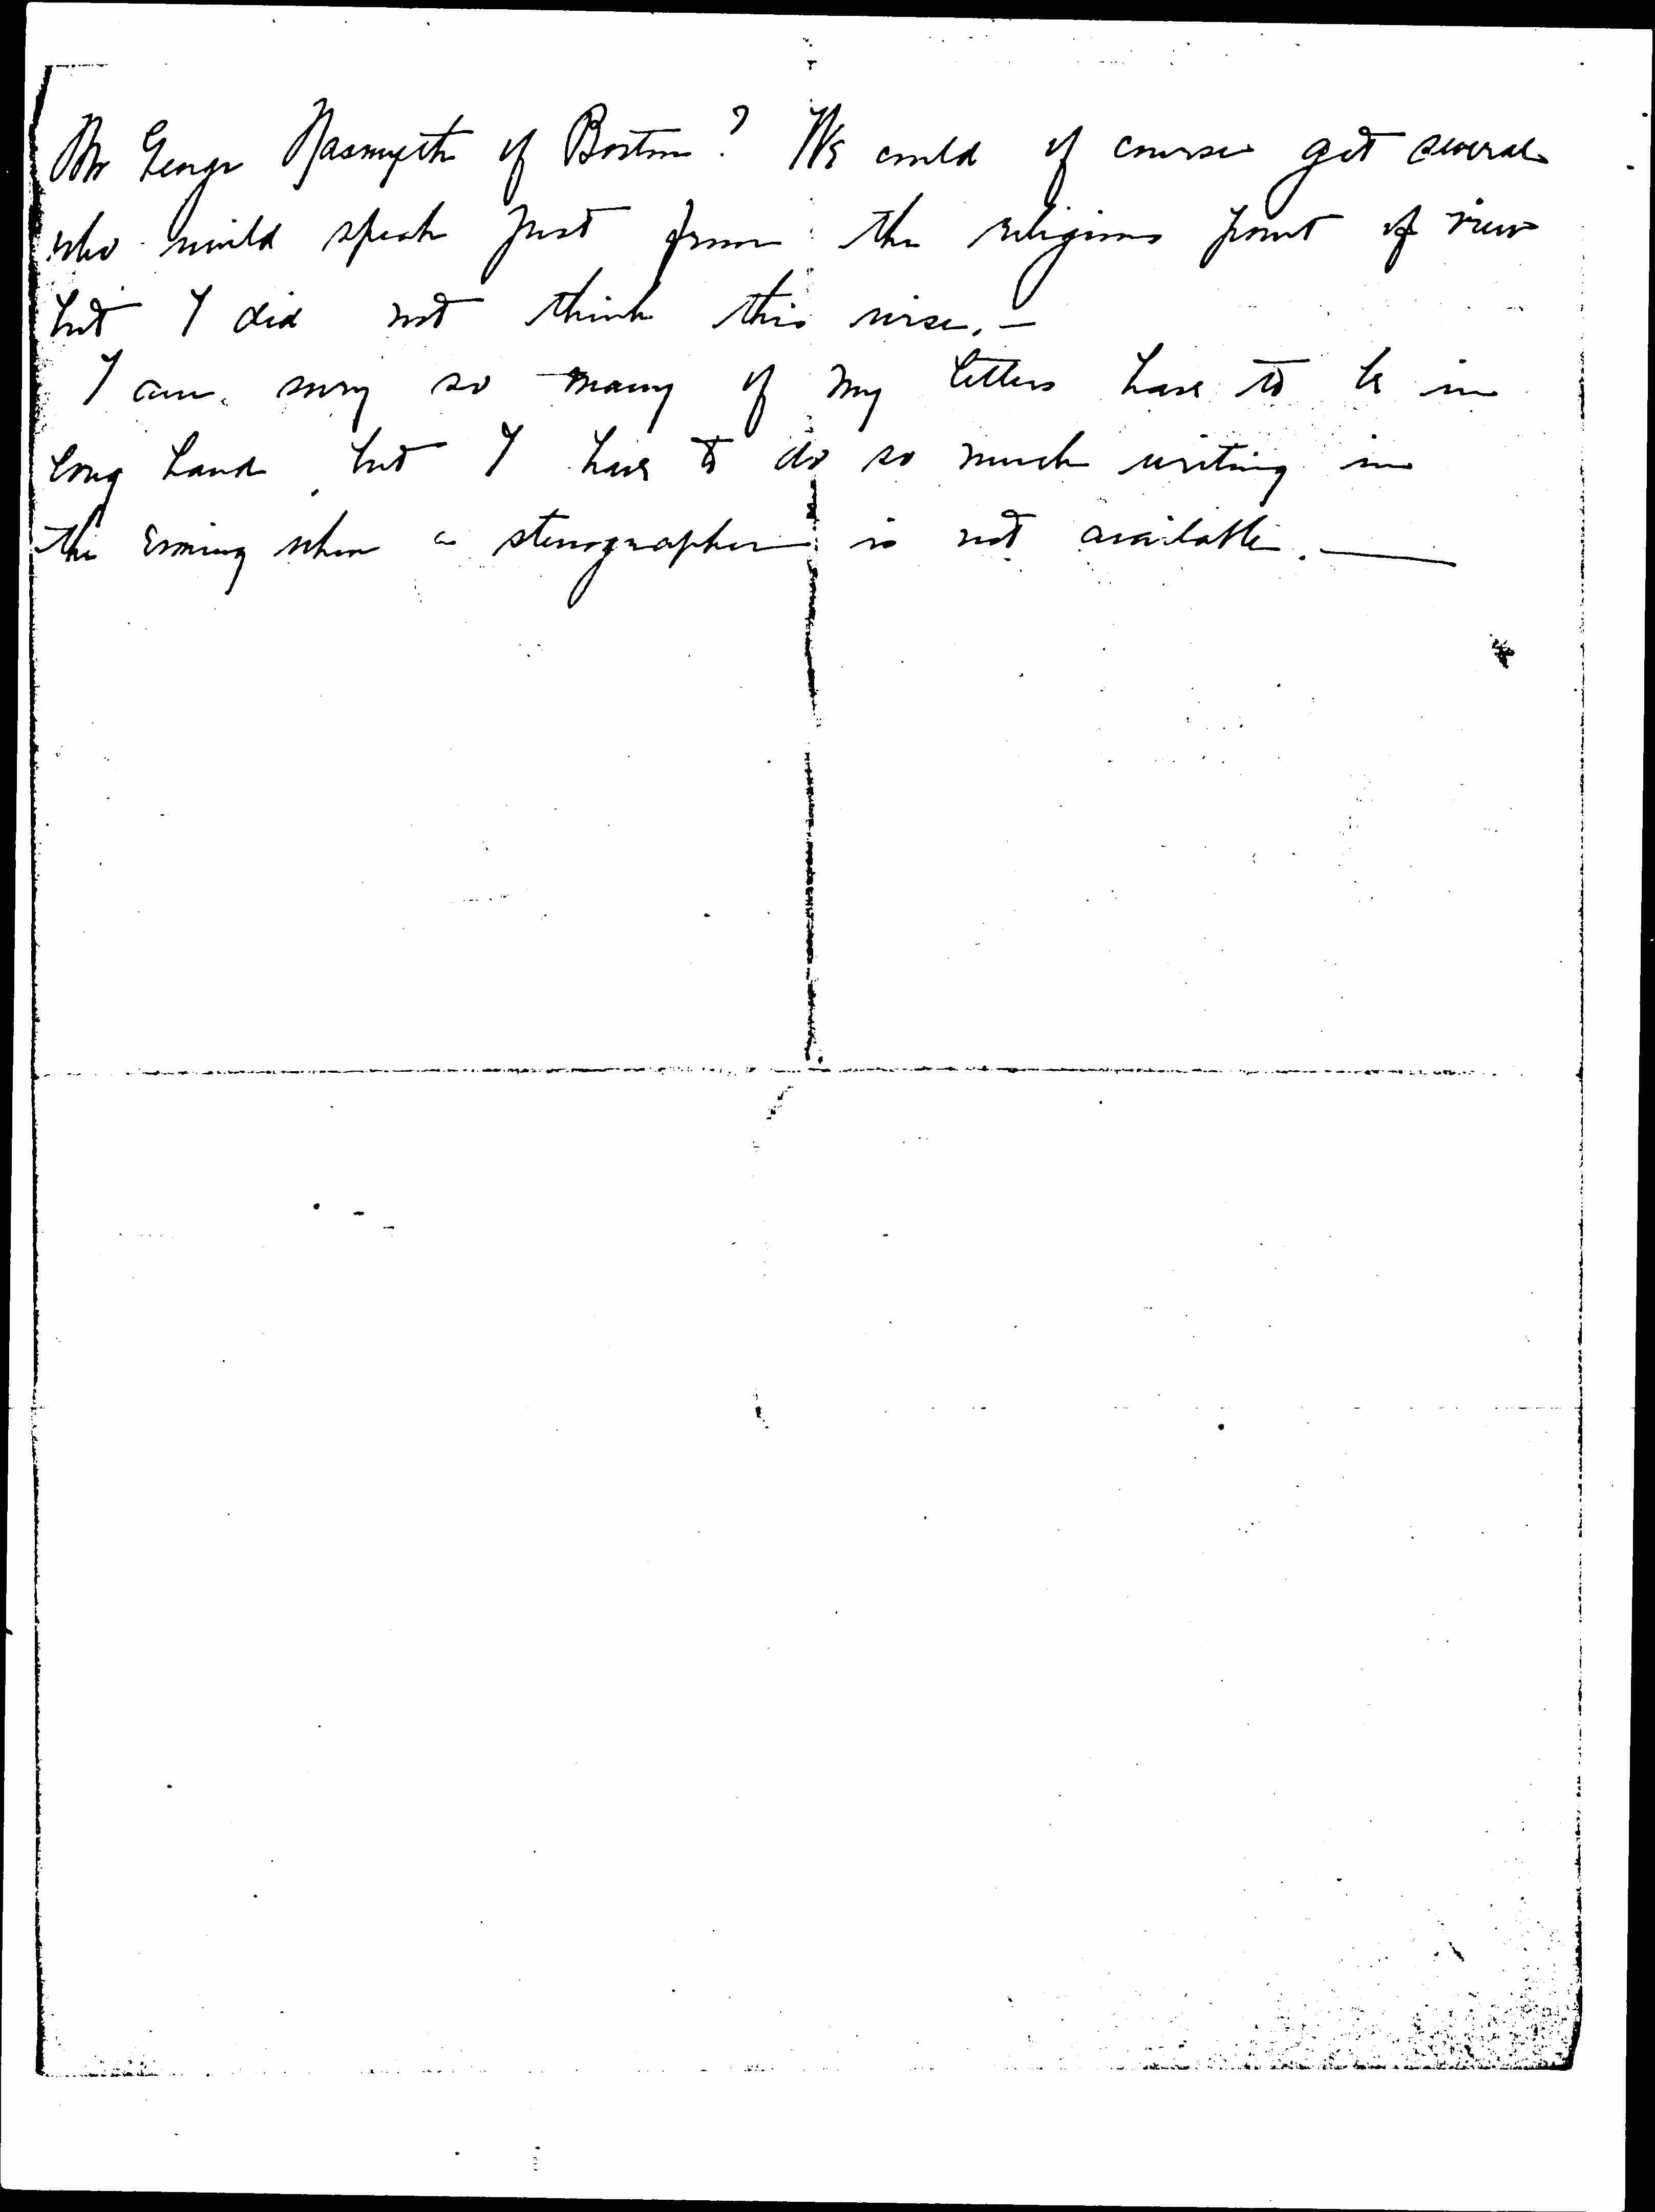 Mr George Nasmyth of Boston? We could of course get several
who would speak just from the religious point of view
but I did not think this wise. —
I am sorry so many of my letters have to be in
long hand but I have to do so much writing in
the evening when a stenographer is not available. —